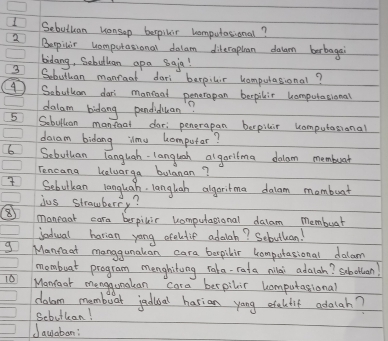 1 Sebutkan konsep berpikir komputasional ?
2 Berpikir komputasional dalam diterapkan dalam berbagai
bidang, Sebutkan apa saja !
3 Sebutkan manfaat dari berpikir komputasional ?
4 Sebutkan dari manfaat penerapan berpikir komputasional
dalam bidang pendidikan ?
5 Sebutkan manfaat dari penerapan berpikir komputasional
dalam bidang ilmu komputer ?
6 Sebutkan langkah-langkah algoritma dalam membuat
rencana keluarga bulanan ?
7 Sebutkan langkah-langkah algoritma dalam membuat
jus Strawberry ?
8 manfaat cara berpikir komputasional dalam membuat
jadwal harian yang efektif adalah ? Sebutkan !
9 Manfaat menggunakan cara berpikir komputasional dalam
membuat program menghitung rata-rata nilai adalah ? Sebutkan !
10 Manfaat menggunakan cara berpikir komputasional
dalam membuat jadwal harian yang efektif adalah ?
Sebutkan !
Jawaban :